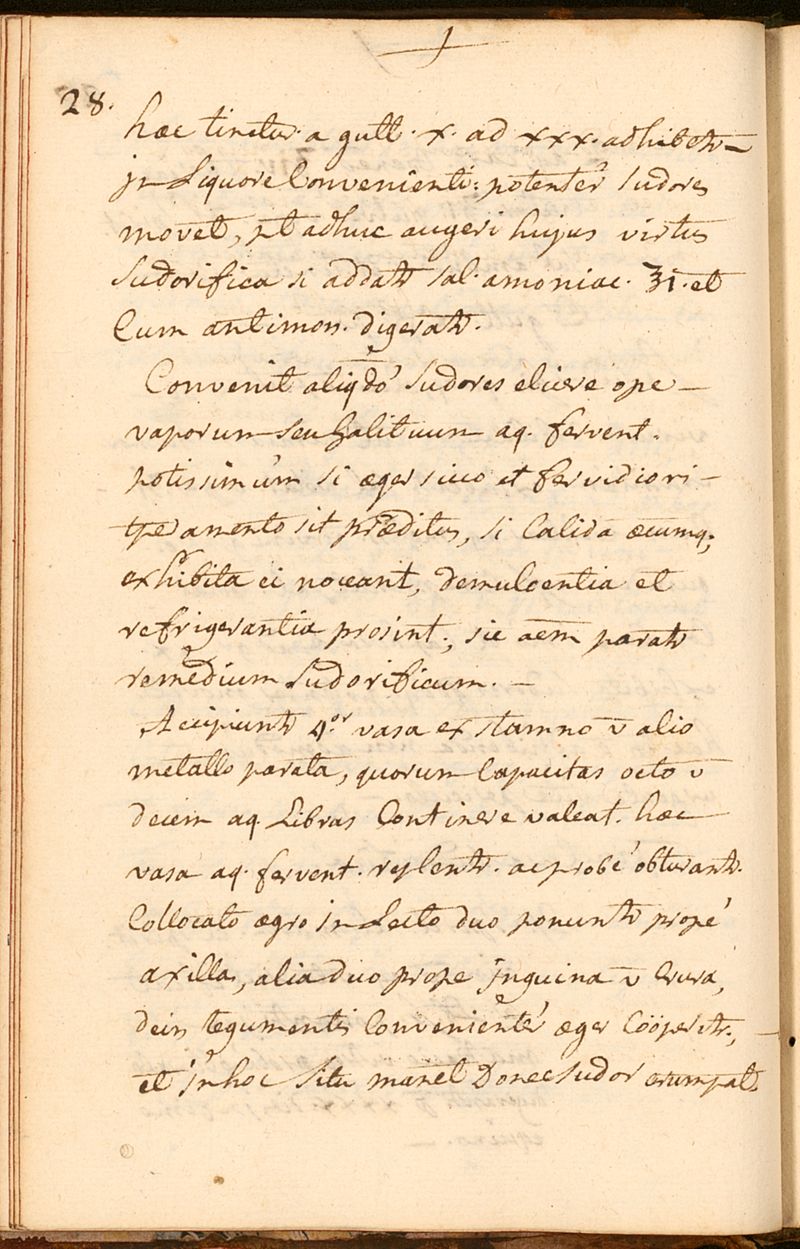 28.
hæc tinctur. a gutt. x. ad xxx. adhibetr
jn Liquore Convenienti: potentér Sudores
movet, pt adhuc augeri hujus virtus
Sudorifica si addatr sal. amoniac. ʒi. et
Cum antimon. digeratr.
Convenit aliqdó Sudores elicere ope
vaporum seu halituum aq. fervent.
potissimúm si æger sicco et fervidiori
tperamento sit præditus, si Calida æcumq;
exhibita ei noceant, demulcentia et
refrigerantia prosint; sic aem paratr
remedium Sudorificum. —
Accipiuntr 4.or vasa ex stamno v̄ alio
metallo parata, quorum Capacitas octo v̄
decem aq. Libras Continere valeat. hæc
vasa aq. fervent. replentr. ac probé obturantr.
Collocato ægro jn Lecto duo ponuntr propé
axillas, alia duo prope jnguina v̄ Crura,
dein tegumentis Convenientér æger Coöperitr.,
et jn hoc Situ manet Donec Sudor erumpat.